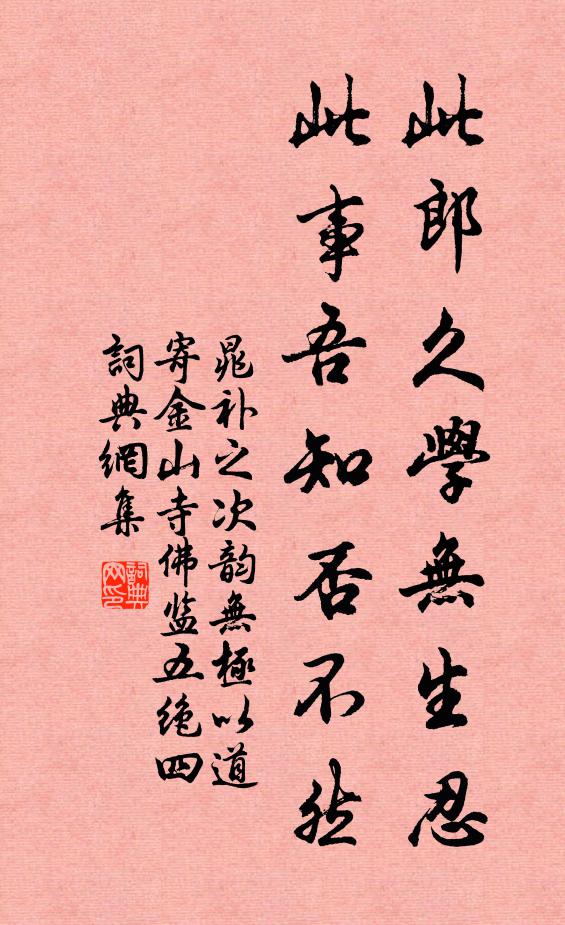 此郎久學無生忍
此事吾知否不然
晁补之次韵無極以道
寄金山寺佛监五绝四
詞典網集
詞典網印